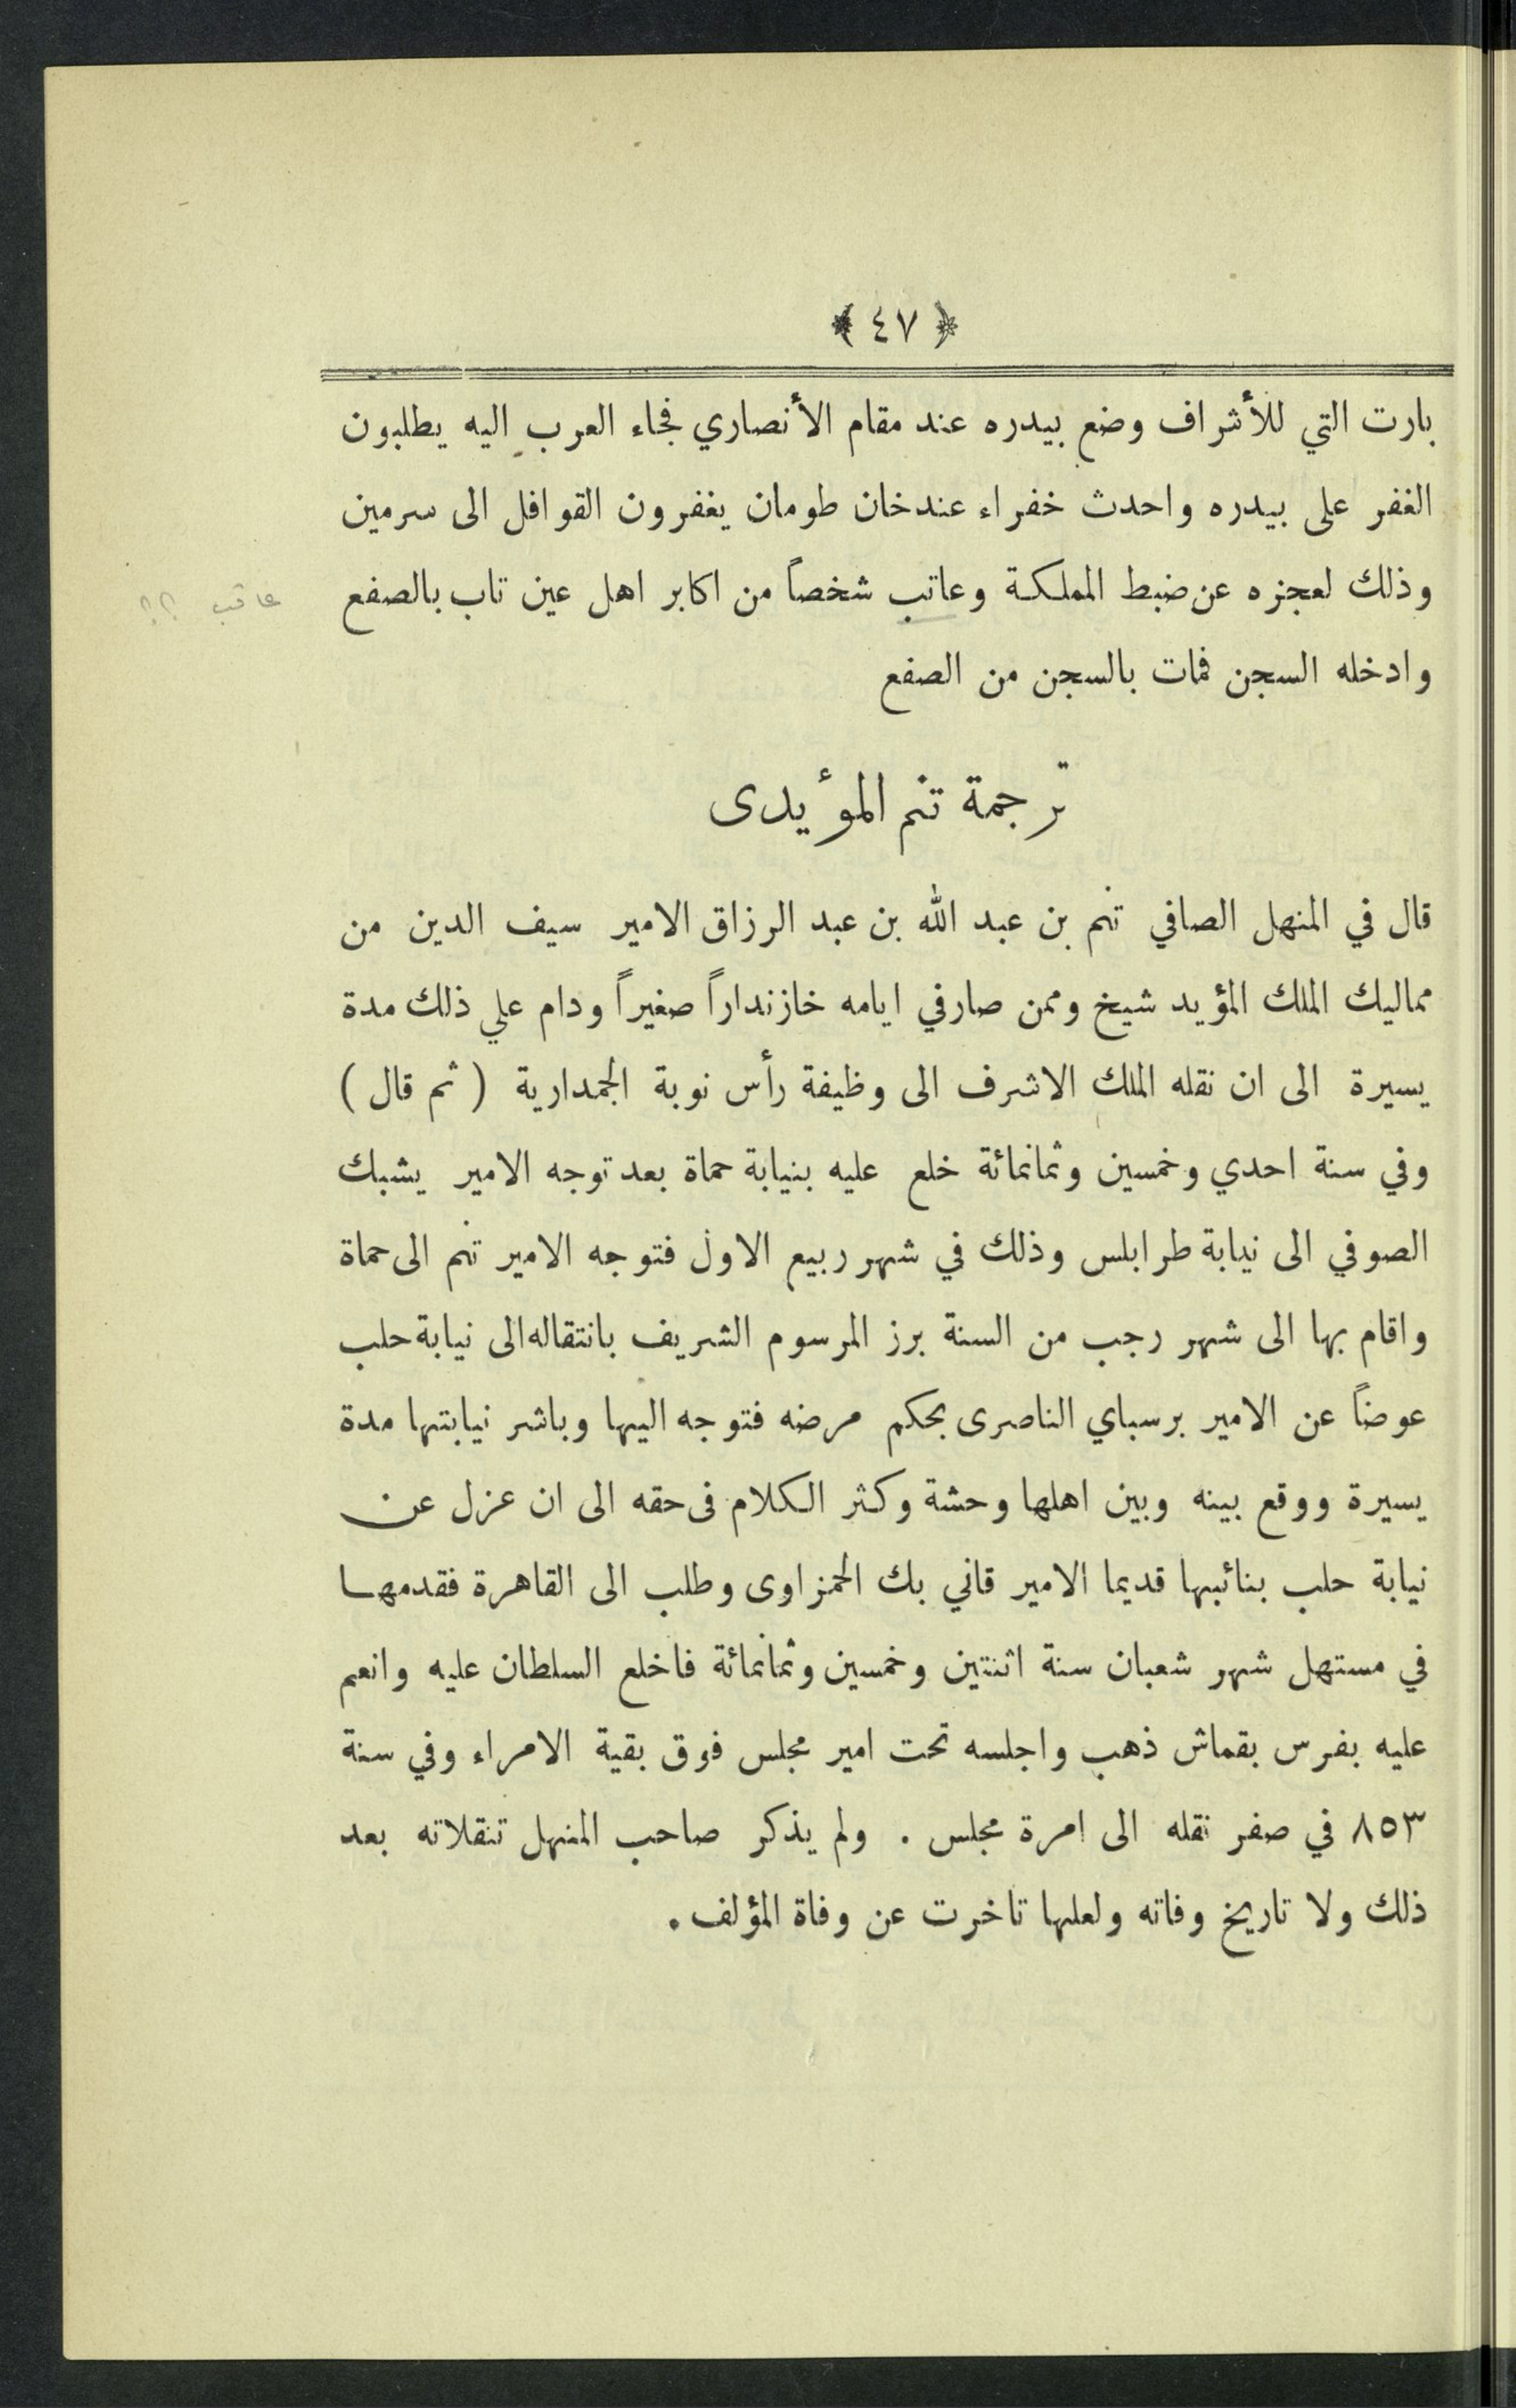 ﴿ ٤٧ ﴾
بارت التي للأشراف وضع بيدره عند مقام الأنصاري فجاء العرب اليه يطلبون
الغفر على بيدره واحدث خفراء عندخان طومان يغفرون القوافل الى سرمين
وذلك لعجزه عن ضبط المملكة وعاتب شخصاً من اكابر اهل عين تاب بالصفع
عاقب ؟؟
وادخله السجن فمات بالسجن من الصفع
ترجمة تنم المؤيدى
قال في المنهل الصافي تنم بن عبد الله بن عبد الرزاق الامير سيف الدين من
مماليك الملك المؤيد شيخ وممن صار في ايامه خازنداراً صغيراً ودام علي ذلك مدة
يسيرة الى ان نقله الملك الاشرف الى وظيفة رأس نوبة الجمدارية ( ثم قال )
وفي سنة احدي وخمسين وثمانمائة خلع عليه بنيابة حماة بعد توجه الامير يشبك
الصوفي الى نيابة طرابلس وذلك في شهر ربيع الاول فتوجه الامير تنم الى حماة
واقام بها الى شهر رجب من السنة برز المرسوم الشريف بانتقاله الى نيابة حلب
عوضاً عن الامير برسباي الناصرى بحكم مرضه فتوجه اليها وباشر نيابتها مدة
يسيرة ووقع بينه وبين اهلها وحشة وكثر الكلام فى حقه الى ان عزل عن
نيابة حلب بنائبها قديما الامير قاني بك الحمزاوى وطلب الى القاهرة فقدمها
في مستهل شهر شعبان سنة اثنتين وخمسين وثمانمائة فاخلع السلطان عليه وانعم
عليه بفرس بقماش ذهب واجلسه تحت امير مجلس فوق بقية الامراء وفي سنة
٨٥٣ في صفر نقله الى امرة مجلس . ولم يذكر صاحب المنهل تنقلاته بعد
ذلك ولا تاريخ وفاته ولعلها تاخرت عن وفاة المؤلف .